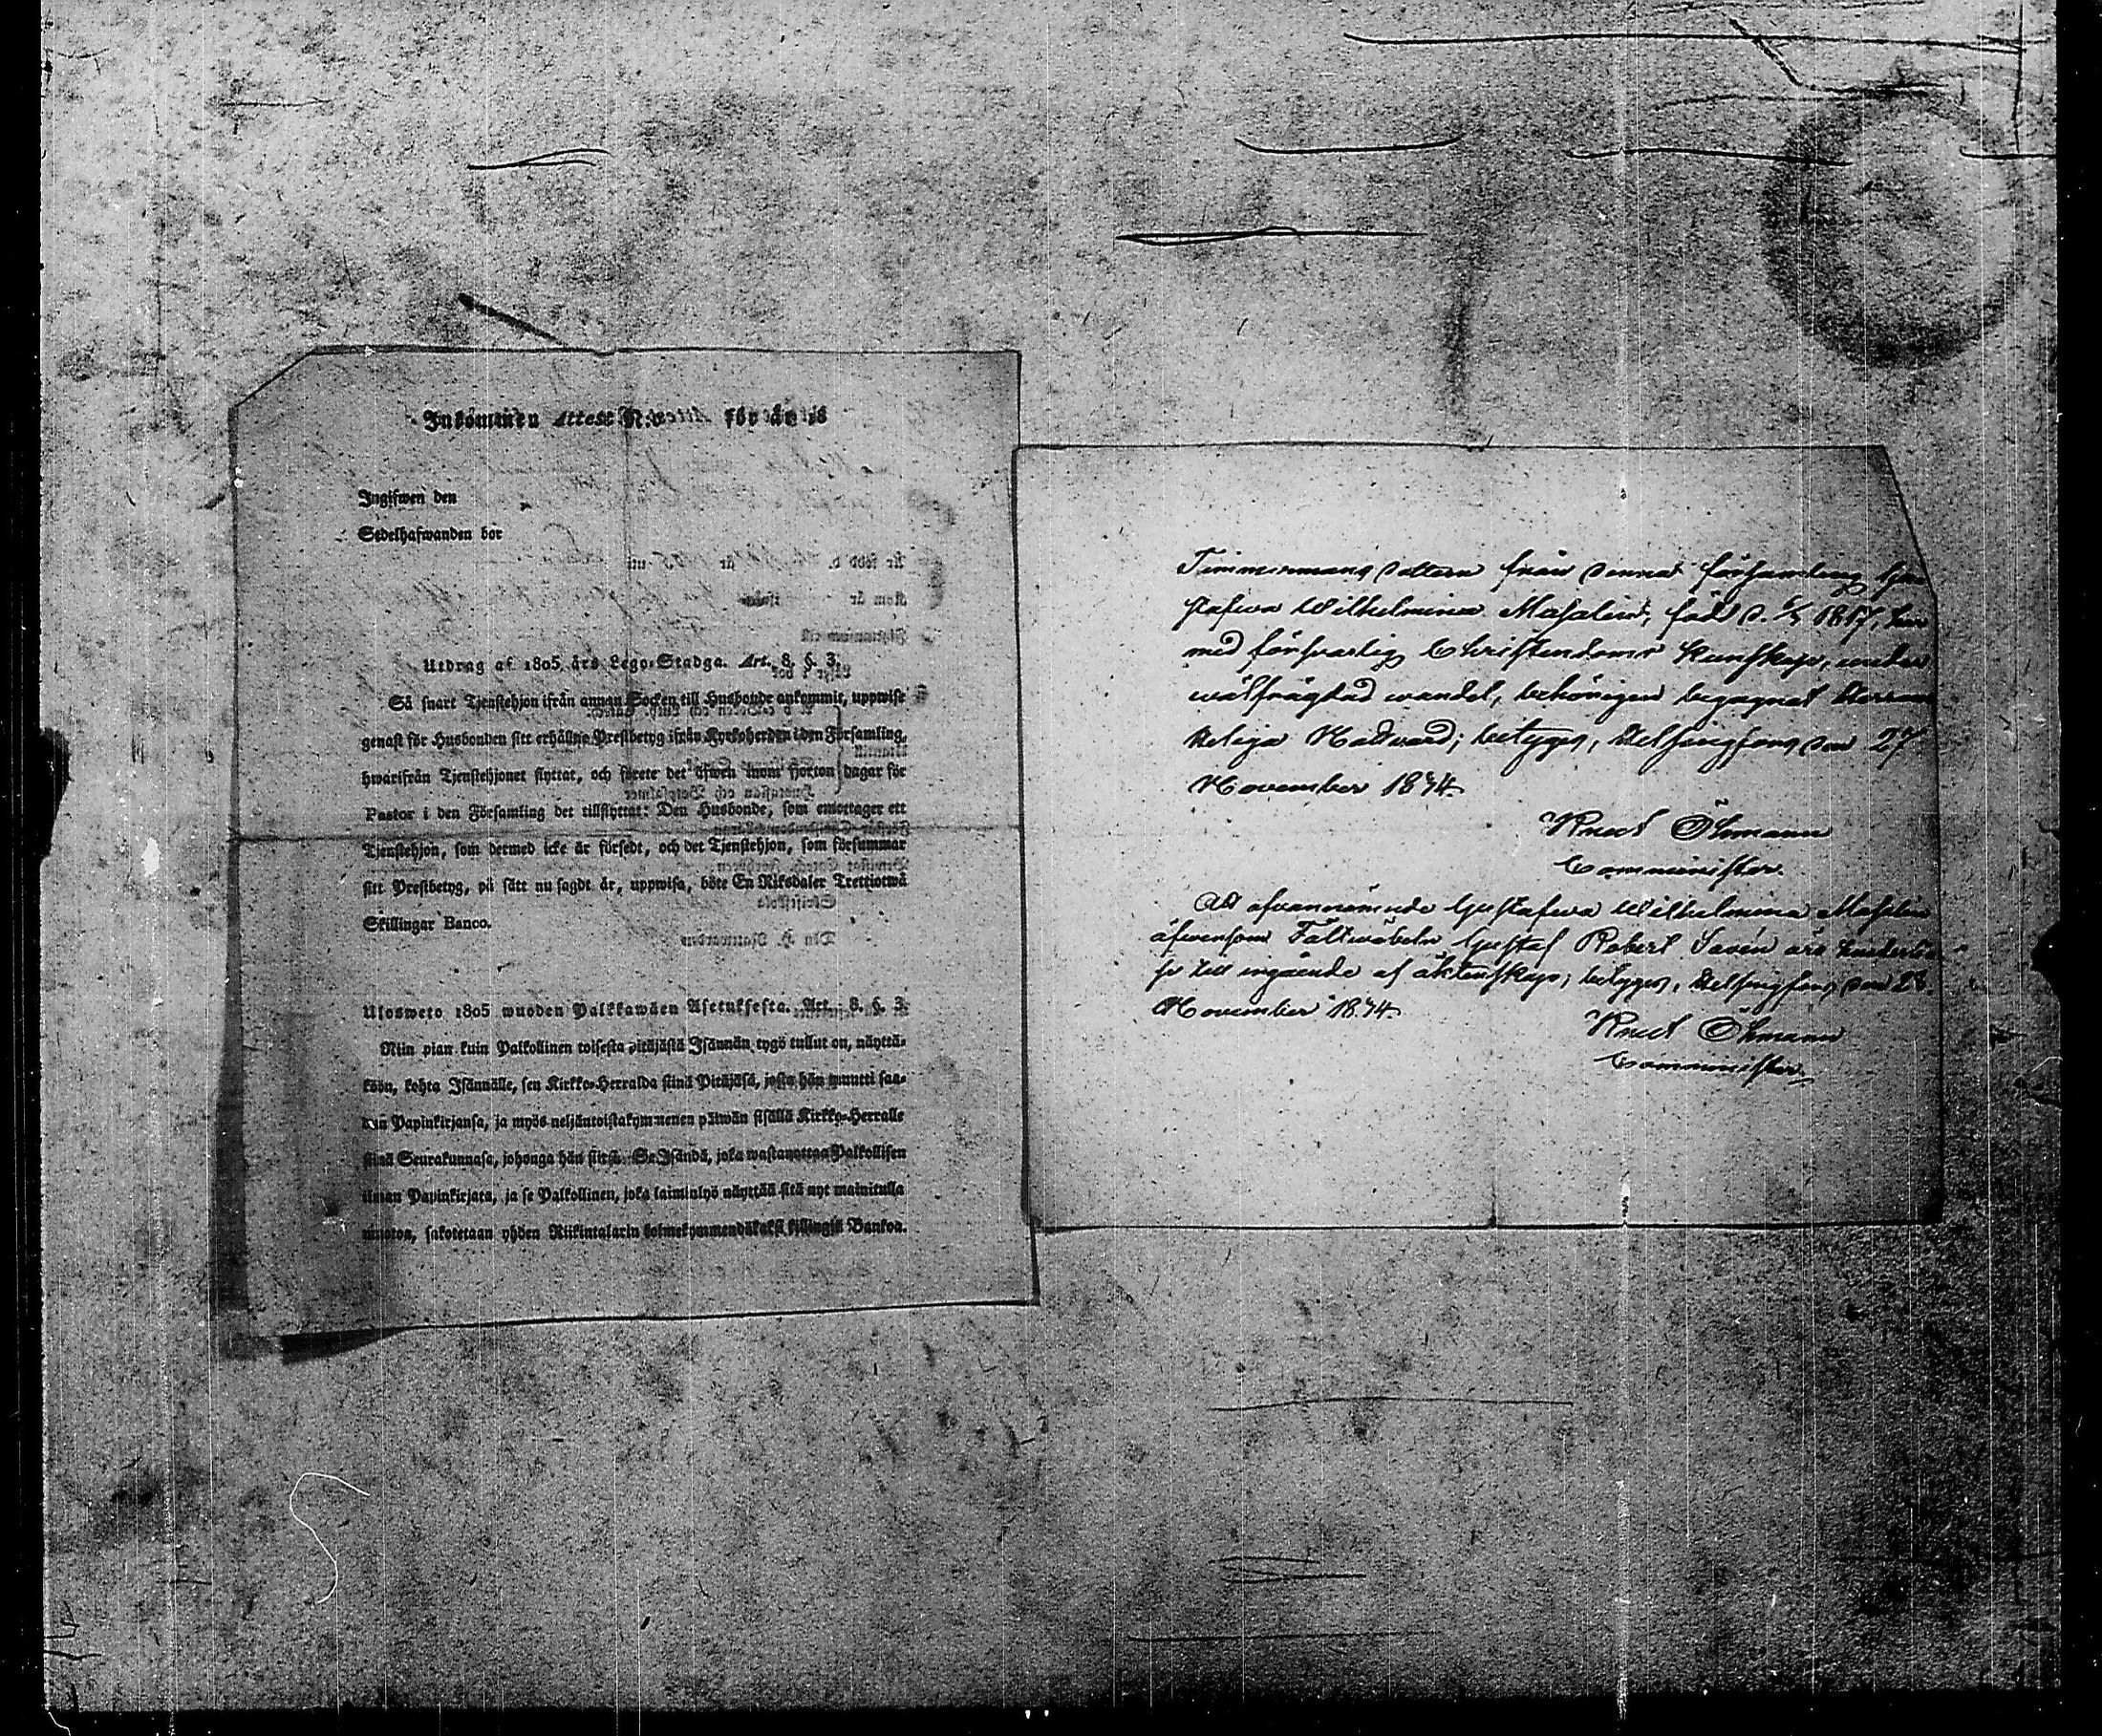 Inkommen Attest N:o för år 18
Ingifwen den
Sedelhafwanden bor
Utdrag af 1805 års Lego-Stadga. Art. 8. §. 3.
Så snart Tjenstehjon ifrån annan Socken till Husbonde ankommit, uppwise
genast för Husbonden sitt erhållne Prestbetyg ifrån Kyrkoherden i den Församling,
hwarifrån Tjenstehjonet flyttat, och förete det äfwen inom fjorton dagar för
Pastor i den Församling det tillflyttat: Den Husbonde, som emottager ett
Tjenstehjon, som dermed icke är försedt, och det Tjenstehjon, som försummar
sitt Prestbetyg, på sätt nu sagdt är, uppwisa, böte En Riksdaler Trettiotwå
Skillingar Banco.
Ulosweto 1805 wuoden Palkkawäen Asetuksesta. Art. 8. §. 3.
Niin pian kuin Palkollinen toisesta pitäjästä Isännän tygö tullut on, näyttä-
köön, kohta Isännälle, sen Kirkko-Herralda siinä Pitäjäsä, josta hän muutti saa-
dun Papinkirjansa, ja myös neljäntoistakymmenen päiwän sisällä Kirkko-Herralle
siinä Seurakunnasa, johonga hän siirsä. Se Isändä, joka wastanottaa Palkollisen
ilman Papinkirjata, ja se Palkollinen, joka laiminlyö näyttää sitä nyt mainitulla
muoton, sakotetaan yhden Riikintalarin kolmekymmendäkaksi killingiä Bankoa.
Timmermans dottern från denna församling Gu
stafwa Wilhelmina Masalin, född d. 1817, har
med förswarlig Christendoms kunskap, under
wälfrägdad wandel, behörigen begagnat Herrans
Heliga Nattward; betygar, Helsingfors den 27
November 1844.
Knut Öhmann
Comminister.
Att ofwannämnde Gustafwa Wilhelmina Masalin
äfwensom Fältwäbeln Gustaf Robert Savén äro hinderlö-
se till ingående af äktenskap; betygar, Helsingfors den 28
November 1844.
Knut Öhmann
Comminister